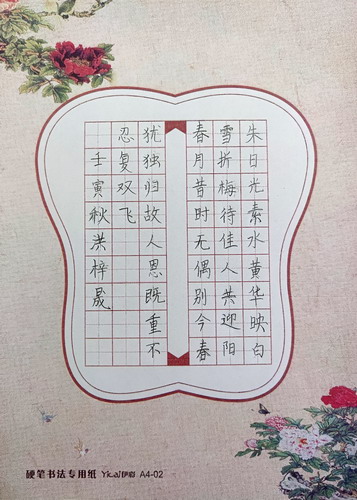 朱日光素水黄华映白
雪折梅待佳人共迎阳
春月昔时无偶别今春
犹独归故人恩既重不
忍复双飞
壬寅秋洪梓晟
硬笔书法专用纸 Yicai伊彩 A4-02